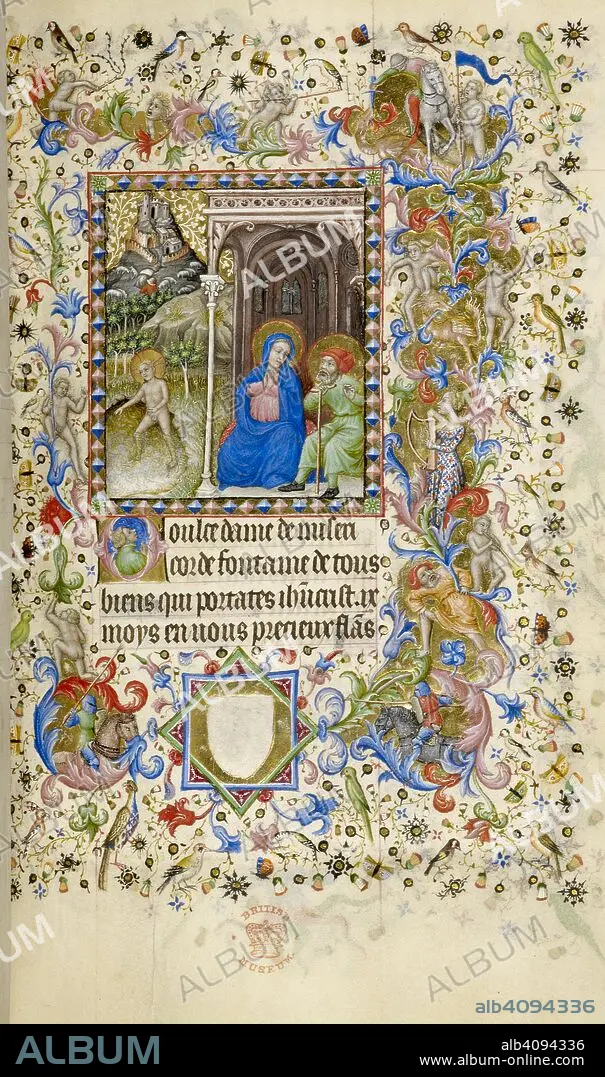 Doulce dame de miseri
corde fontaine de tous
biens qui portates ihucrist. ix
moys en uous precieux flans
BRITISH
MUSEUM
ALBUM
alb4094336
ALBUM
alb4094336
www.album-online.com